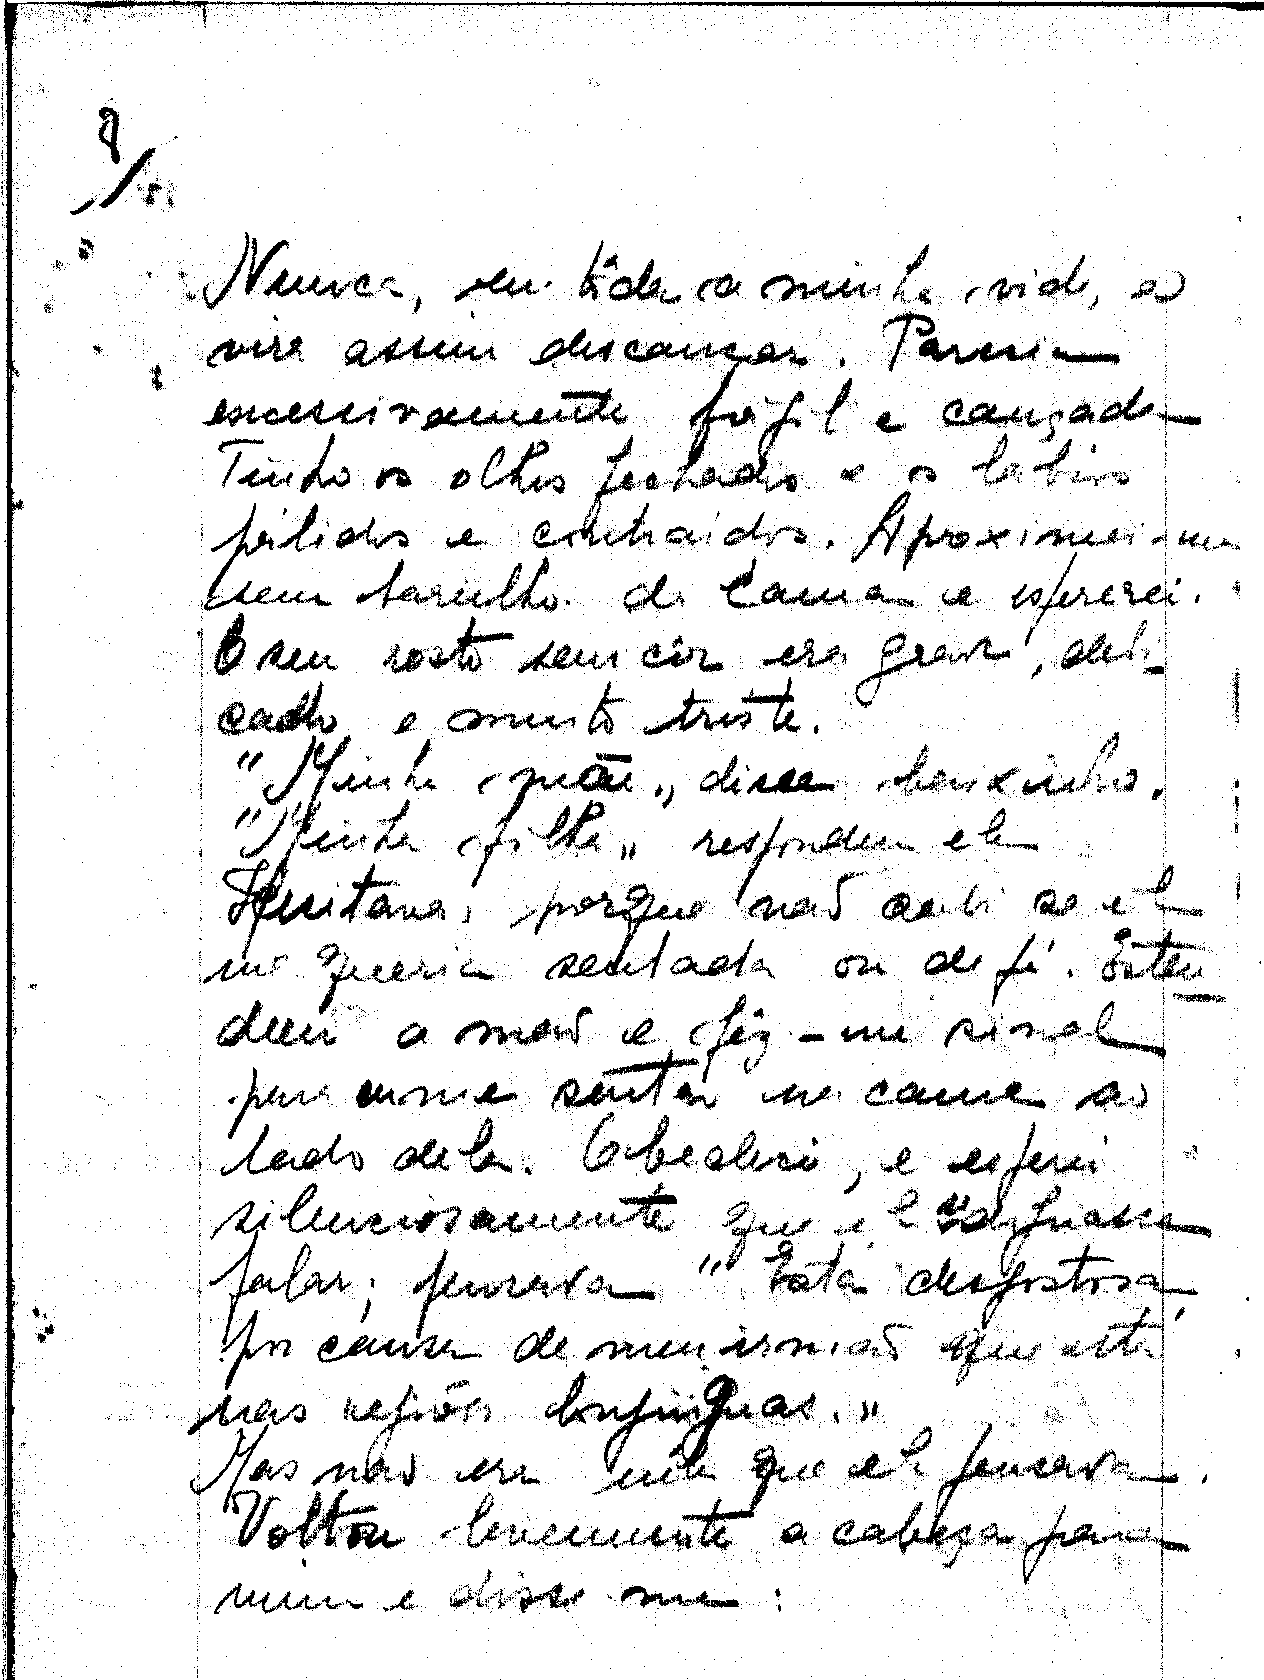 Nunca, em tôda a minha vida, a
vira assim descançar. Parecia
excessivamente frágil e cançada
Tinha os olhos fechados e os labios
pálidos e contraidos. Aproximei-me
sem barulho da cama e esperei.
O seu rosto sem côr era grave, deli-
cado e muito triste.
"Minha mãe", disse baixinho.
"Minha filha" respondeu ela
Hesitava, porque não sabi se ela
me queria sentada ou de pé. Esten
deu a mão e fêz-me sinal
para me sentar na cama ao
lado dela. Obedeci, e esperei
silenciosamente que ela
falar; pensava "Está desgostosa
por causa de meu irmão que está
nas regiões longinquas."
Mas não era nele que ela pensava.
Voltou levemente a cabeça para
mim e disse me: